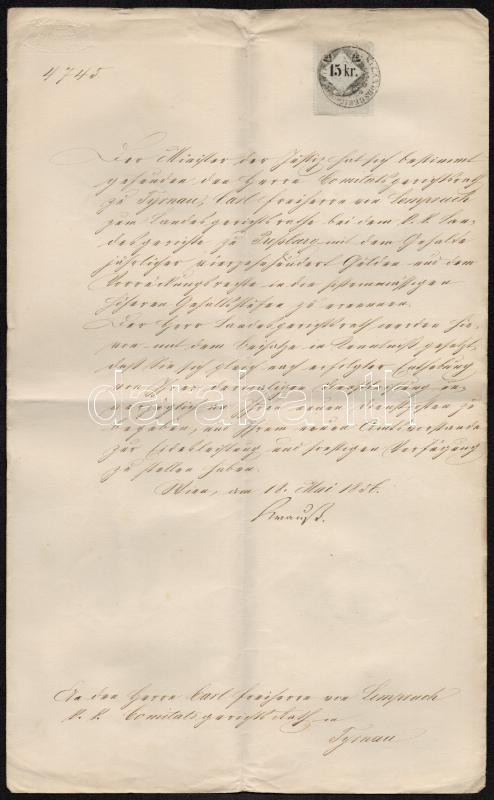 4745
15 kr.
Der Minister der Justiz hat sich bestimmt
gefunden, den Herrn Comitatsgerichtsrath
zu Tyrnau, Carl Freiherrn von Lempruch
zum Landesgerichtsrathe bei dem k. k. Lan-
desgerichte zu Preßburg mit dem Gehalte
jährlicher vierzehnhundert Gulden und dem
Vorrückungsrechte in die sistemmässigen
höheren Gehaltsstufen zu ernennen.
Der Herr Landesgerichtsrath werden hie-
von mit dem Beisatze in Kenntniß gesetzt,
daß Sie sich gleich nach erfolgter Enthebung
von Ihrer dermaligen Dienstleistung un-
verzüglich an Ihren neuen Dienstposten zu
begeben, und Ihrem neuen Amtsvorstande
zur Eidesleistung und sonstigen Verfügung
zu stellen haben.
Wien, am 18. Mai 1856.
Krauß.
darabanth
An den Herrn Carl Freiherrn von Lempruch
k. k. Comitatsgerichts Rath in
Tyrnau